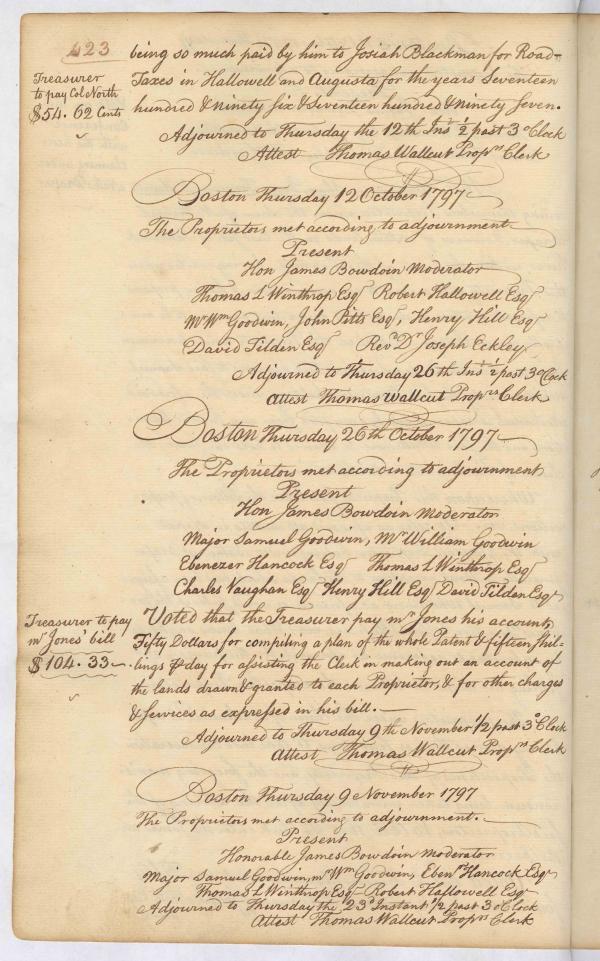 423
being so much paid by him to Josiah Blackman for Road-
Treasurer
to pay Col North
$54. 62 Cents
Taxes in Hallowell and Augusta for the years Seventeen
hundred & ninety six & Seventeen hundred & ninety Seven.
Adjourned to Thursday the 12th Inst ½ past 3 oClock
Attest Thomas Wallcut Proprs Clerk
Boston Thursday 12 October 1797
The Proprietors met according to adjournment
Present
Hon James Bowdoin Moderator
Thomas L Winthrop Esqr Robert Hallowell Esqr
Mr Wm Goodwin, John Pitts Esqr, Henry Hill Esqr
David Tilden Esqr Revd Dr Joseph Eckley
Adjourned to Thursday 26th Inst ½ past 3 oClock
Attest Thomas Wallcut Proprs Clerk
Boston Thursday 26th October 1797
The Proprietors met according to adjournment
Present
Hon James Bowdoin Moderator
Major Samuel Goodwin, Mr William Goodwin
Ebenezer Hancock Esqr Thomas L Winthrop Esqr
Charles Vaughan Esqr Henry Hill Esqr David Tilden Esqr
Treasurer to pay
mr Jones' bill
$104. 33
Voted that the Treasurer pay mr Jones his account,
Fifty Dollars for compiling a plan of the whole Patent & fifteen shil-
lings ⅌ day for assisting the Clerk in making out an account of
the lands drawn & granted to each Proprietor, & for other charges
& services as expressed in his bill.
Adjourned to Thursday 9th November ½ past 3 oClock
Attest Thomas Wallcut Proprs Clerk
Boston Thursday 9 November 1797
The Proprietors met according to adjournment.
Present
Honorable James Bowdoin Moderator
Major Samuel Goodwin, mr Wm Goodwin, Ebenr Hancock Esqr
Thomas L Winthrop Esqr Robert Hallowell Esqr
Adjourned to Thursday the 23d Instant ½ past 3 oClock
Attest Thomas Wallcut Proprs Clerk